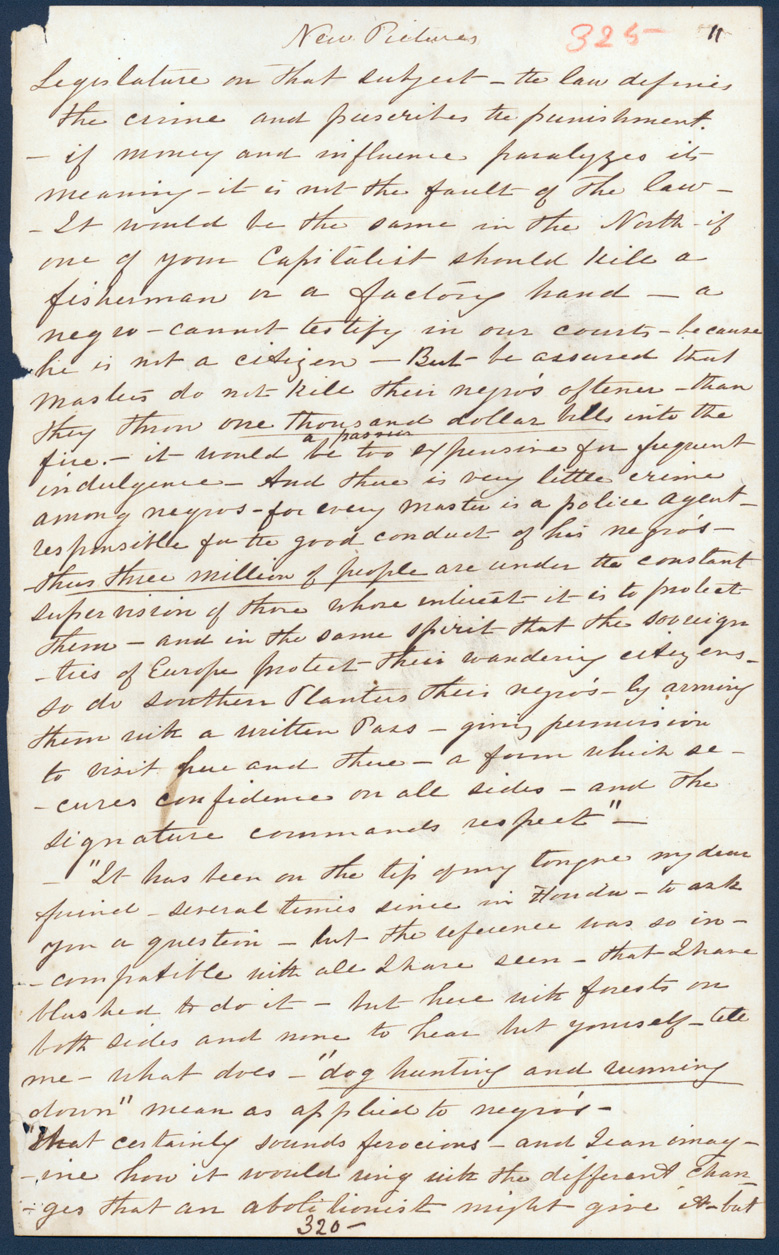 New Pictures 325 11
Legislature on that subject – the law defines
the crime and prescribes the punishment.
– if money and influence paralyzes its
meaning – it is not the fault of the law –
– It would be the same in the North – if
one of your Capitalist should kill a
fisherman or a factory hand – a
negro – cannot testify in our courts – because
he is not a citizen – But – be assured that
masters do not kill their negro's oftener – than
they throw one thousand dollar bills into the
a passion
fire. – it would be too expensive for frequent
indulgence – And there is very little crime
among negros – for every master is a police agent –
responsible for the good conduct of his negro's –
thus three million of people are under the constant
supervision of those whose interest it is to protect
them – and in the same spirit that the sovereign
– ties of Europe protect their wandering citizens –
so do southern Planters their negro's – by arming
them with a written Pass – giving permission
to visit here and there – a form which se –
– cures confidence on all sides – and the
signature commands respect" –
– "It has been on the tip of my tongue my dear
friend – several times since in Florida – to ask
you a question – but the reference was so in –
– compatible with all I have seen – that I have
blushed to do it – but here with forests on
both sides and none to hear but yourself – tell
me – what does – "dog hunting and running
down" mean as applied to negro's –
"That certainly sounds ferocious – and I can imag –
– ine how it would ring with the different chan
– ges that an abolitionist might give it – but
320 –